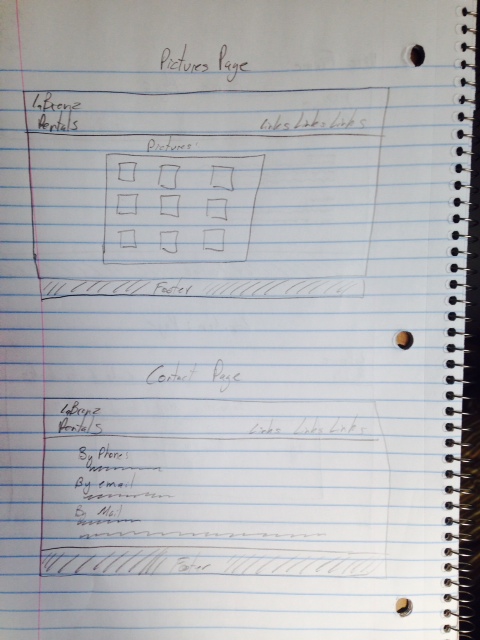 Pictures Page
LaBrenz
Rentals
Links Links Links
Pictures:
Footer
Contact Page
LaBrenz
Rentals
Links Links Links
By Phone:
By email
By Mail
Footer